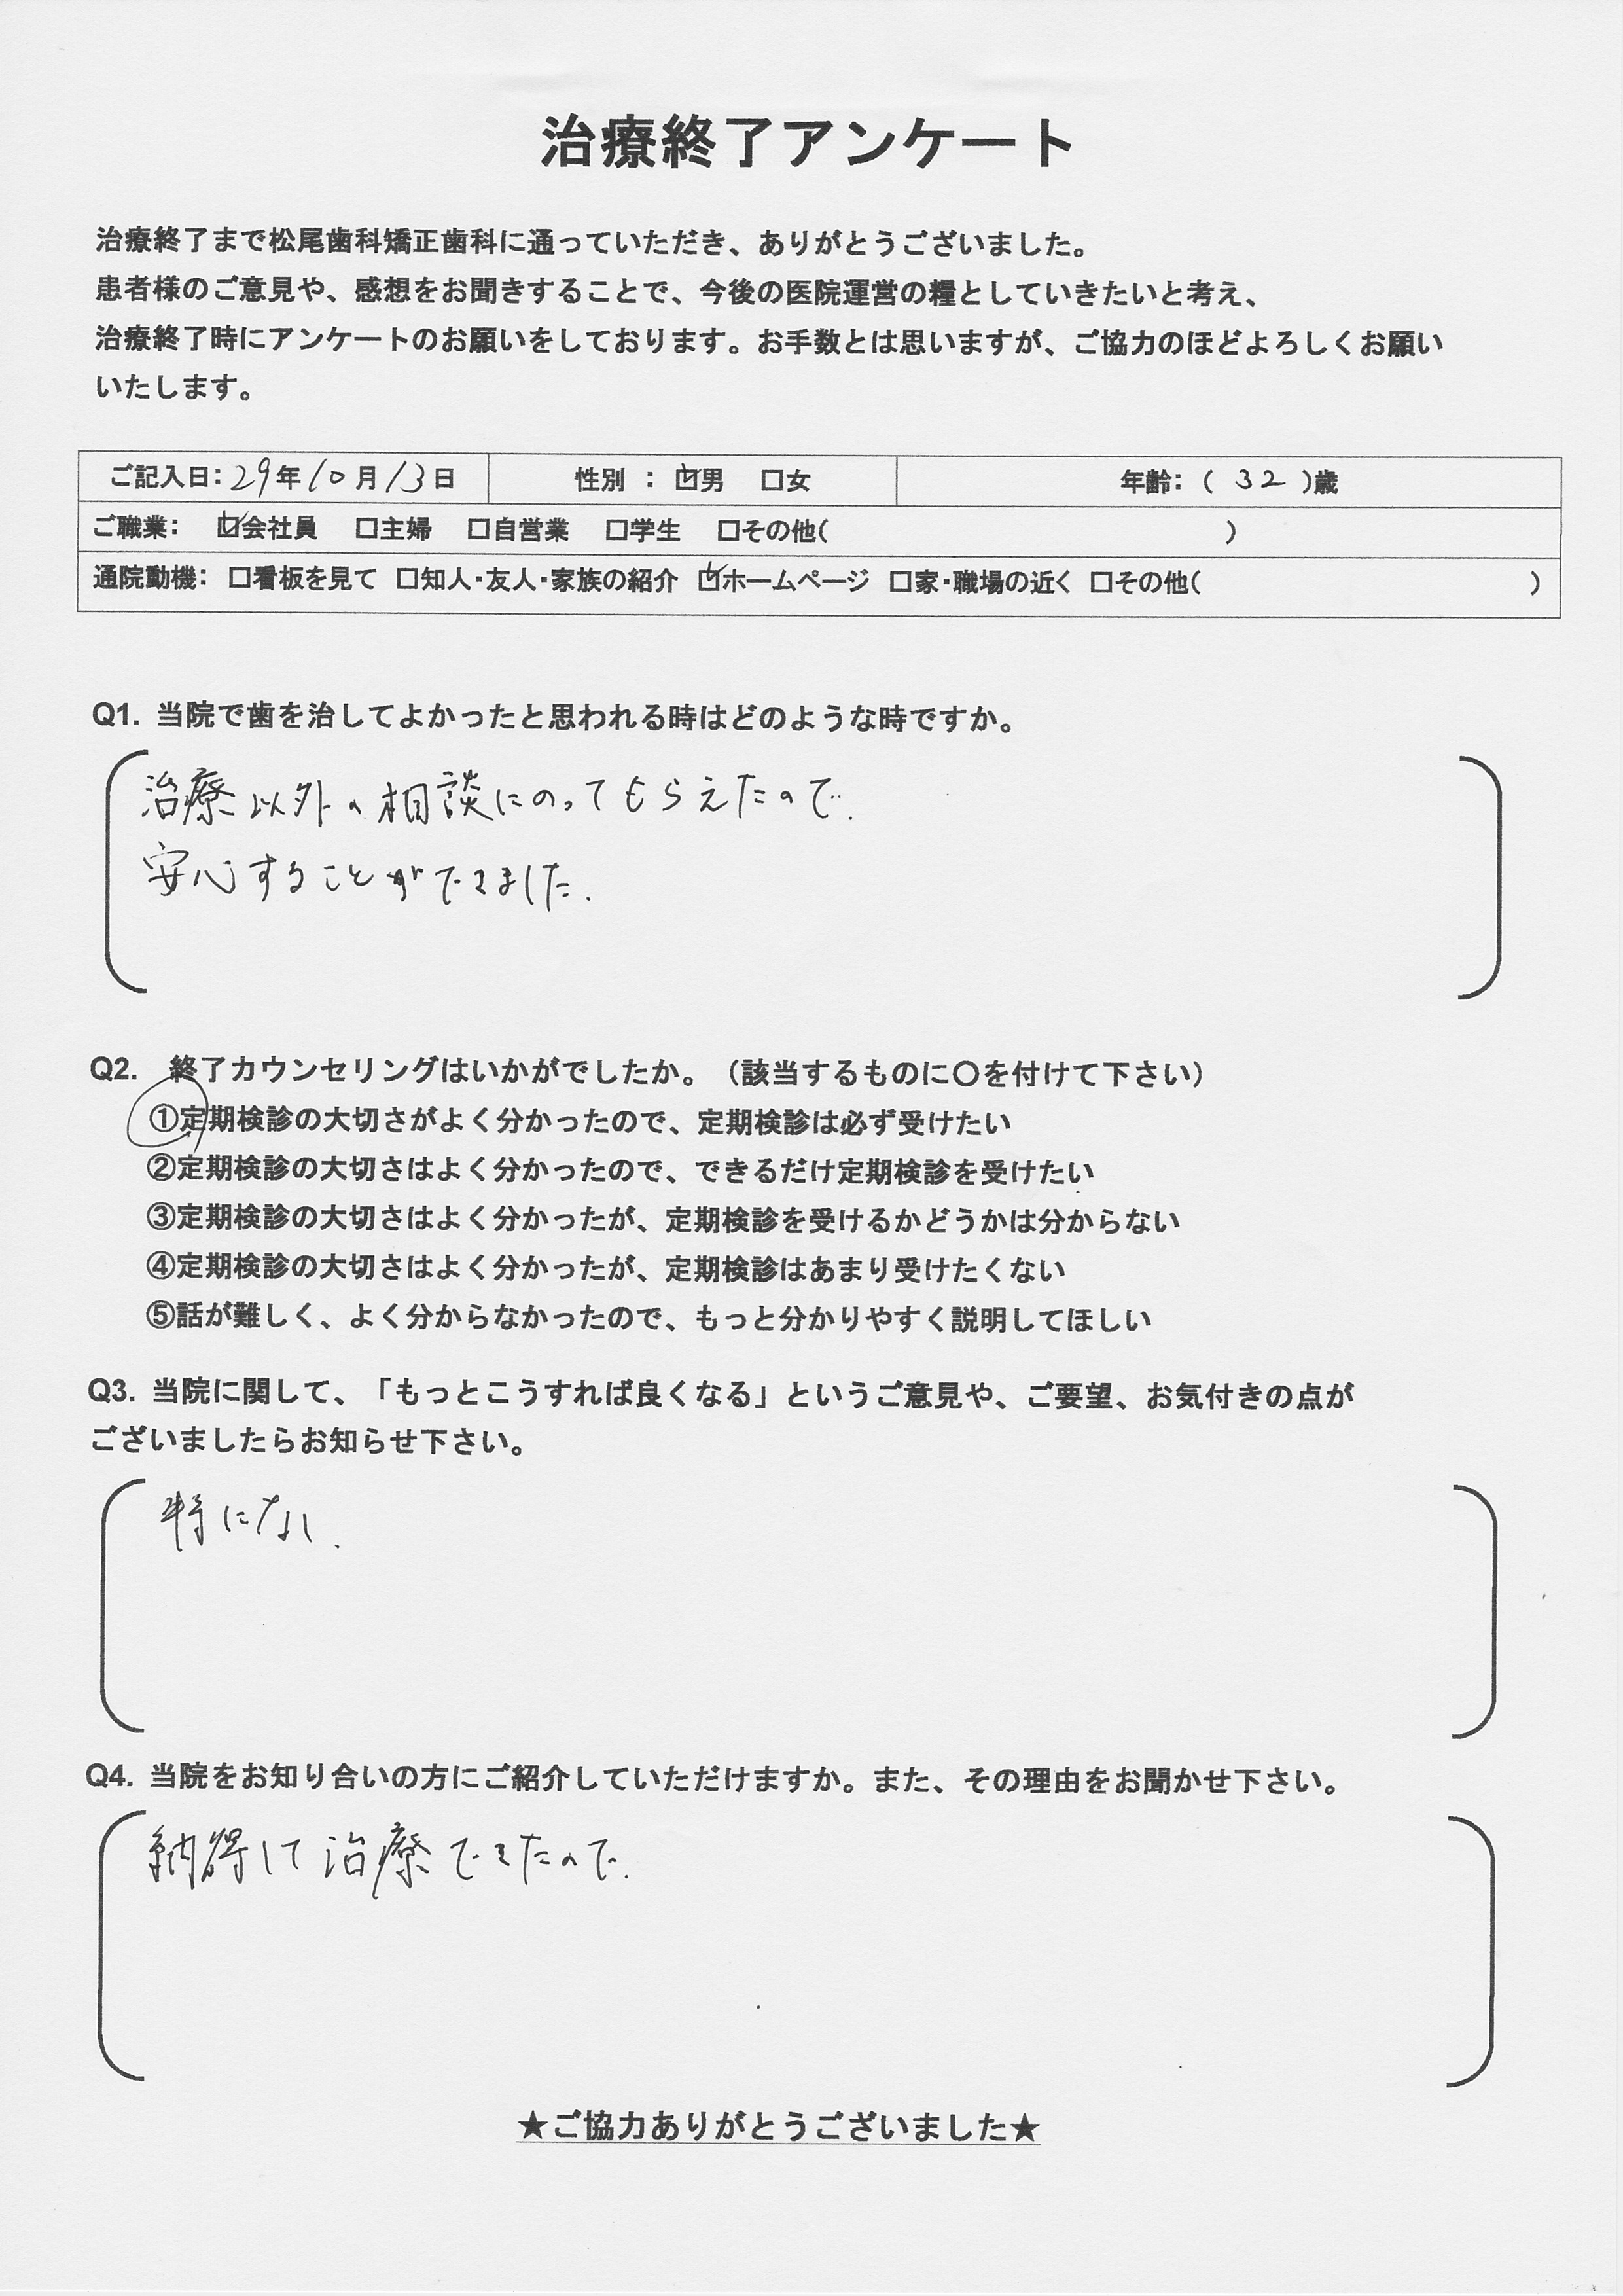 治療終了アンケート
治療終了まで松尾歯科矯正歯科に通っていただき、ありがとうございました。
患者様のご意見や、感想をお聞きすることで、今後の医院運営の糧としていきたいと考え、
治療終了時にアンケートのお願いをしております。お手数とは思いますが、ご協力のほどよろしくお願い
いたします。
ご記入日：29年10月13日 性別 ： ☑男 □女 年齢：（ 32 ）歳
ご職業： ☑会社員 □主婦 □自営業 □学生 □その他（ ）
通院動機： □看板を見て □知人・友人・家族の紹介 ☑ホームページ □家・職場の近く □その他（ ）
Q1. 当院で歯を治してよかったと思われる時はどのような時ですか。
治療以外の相談にのってもらえたので.
安心することができました.
Q2. 終了カウンセリングはいかがでしたか。（該当するものに〇を付けて下さい）
①定期検診の大切さがよく分かったので、定期検診は必ず受けたい
②定期検診の大切さはよく分かったので、できるだけ定期検診を受けたい
③定期検診の大切さはよく分かったが、定期検診を受けるかどうかは分からない
④定期検診の大切さはよく分かったが、定期検診はあまり受けたくない
⑤話が難しく、よく分からなかったので、もっと分かりやすく説明してほしい
Q3. 当院に関して、「もっとこうすれば良くなる」というご意見や、ご要望、お気付きの点が
ございましたらお知らせ下さい。
特にない.
Q4. 当院をお知り合いの方にご紹介していただけますか。また、その理由をお聞かせ下さい。
納得して治療できたので.
★ご協力ありがとうございました★